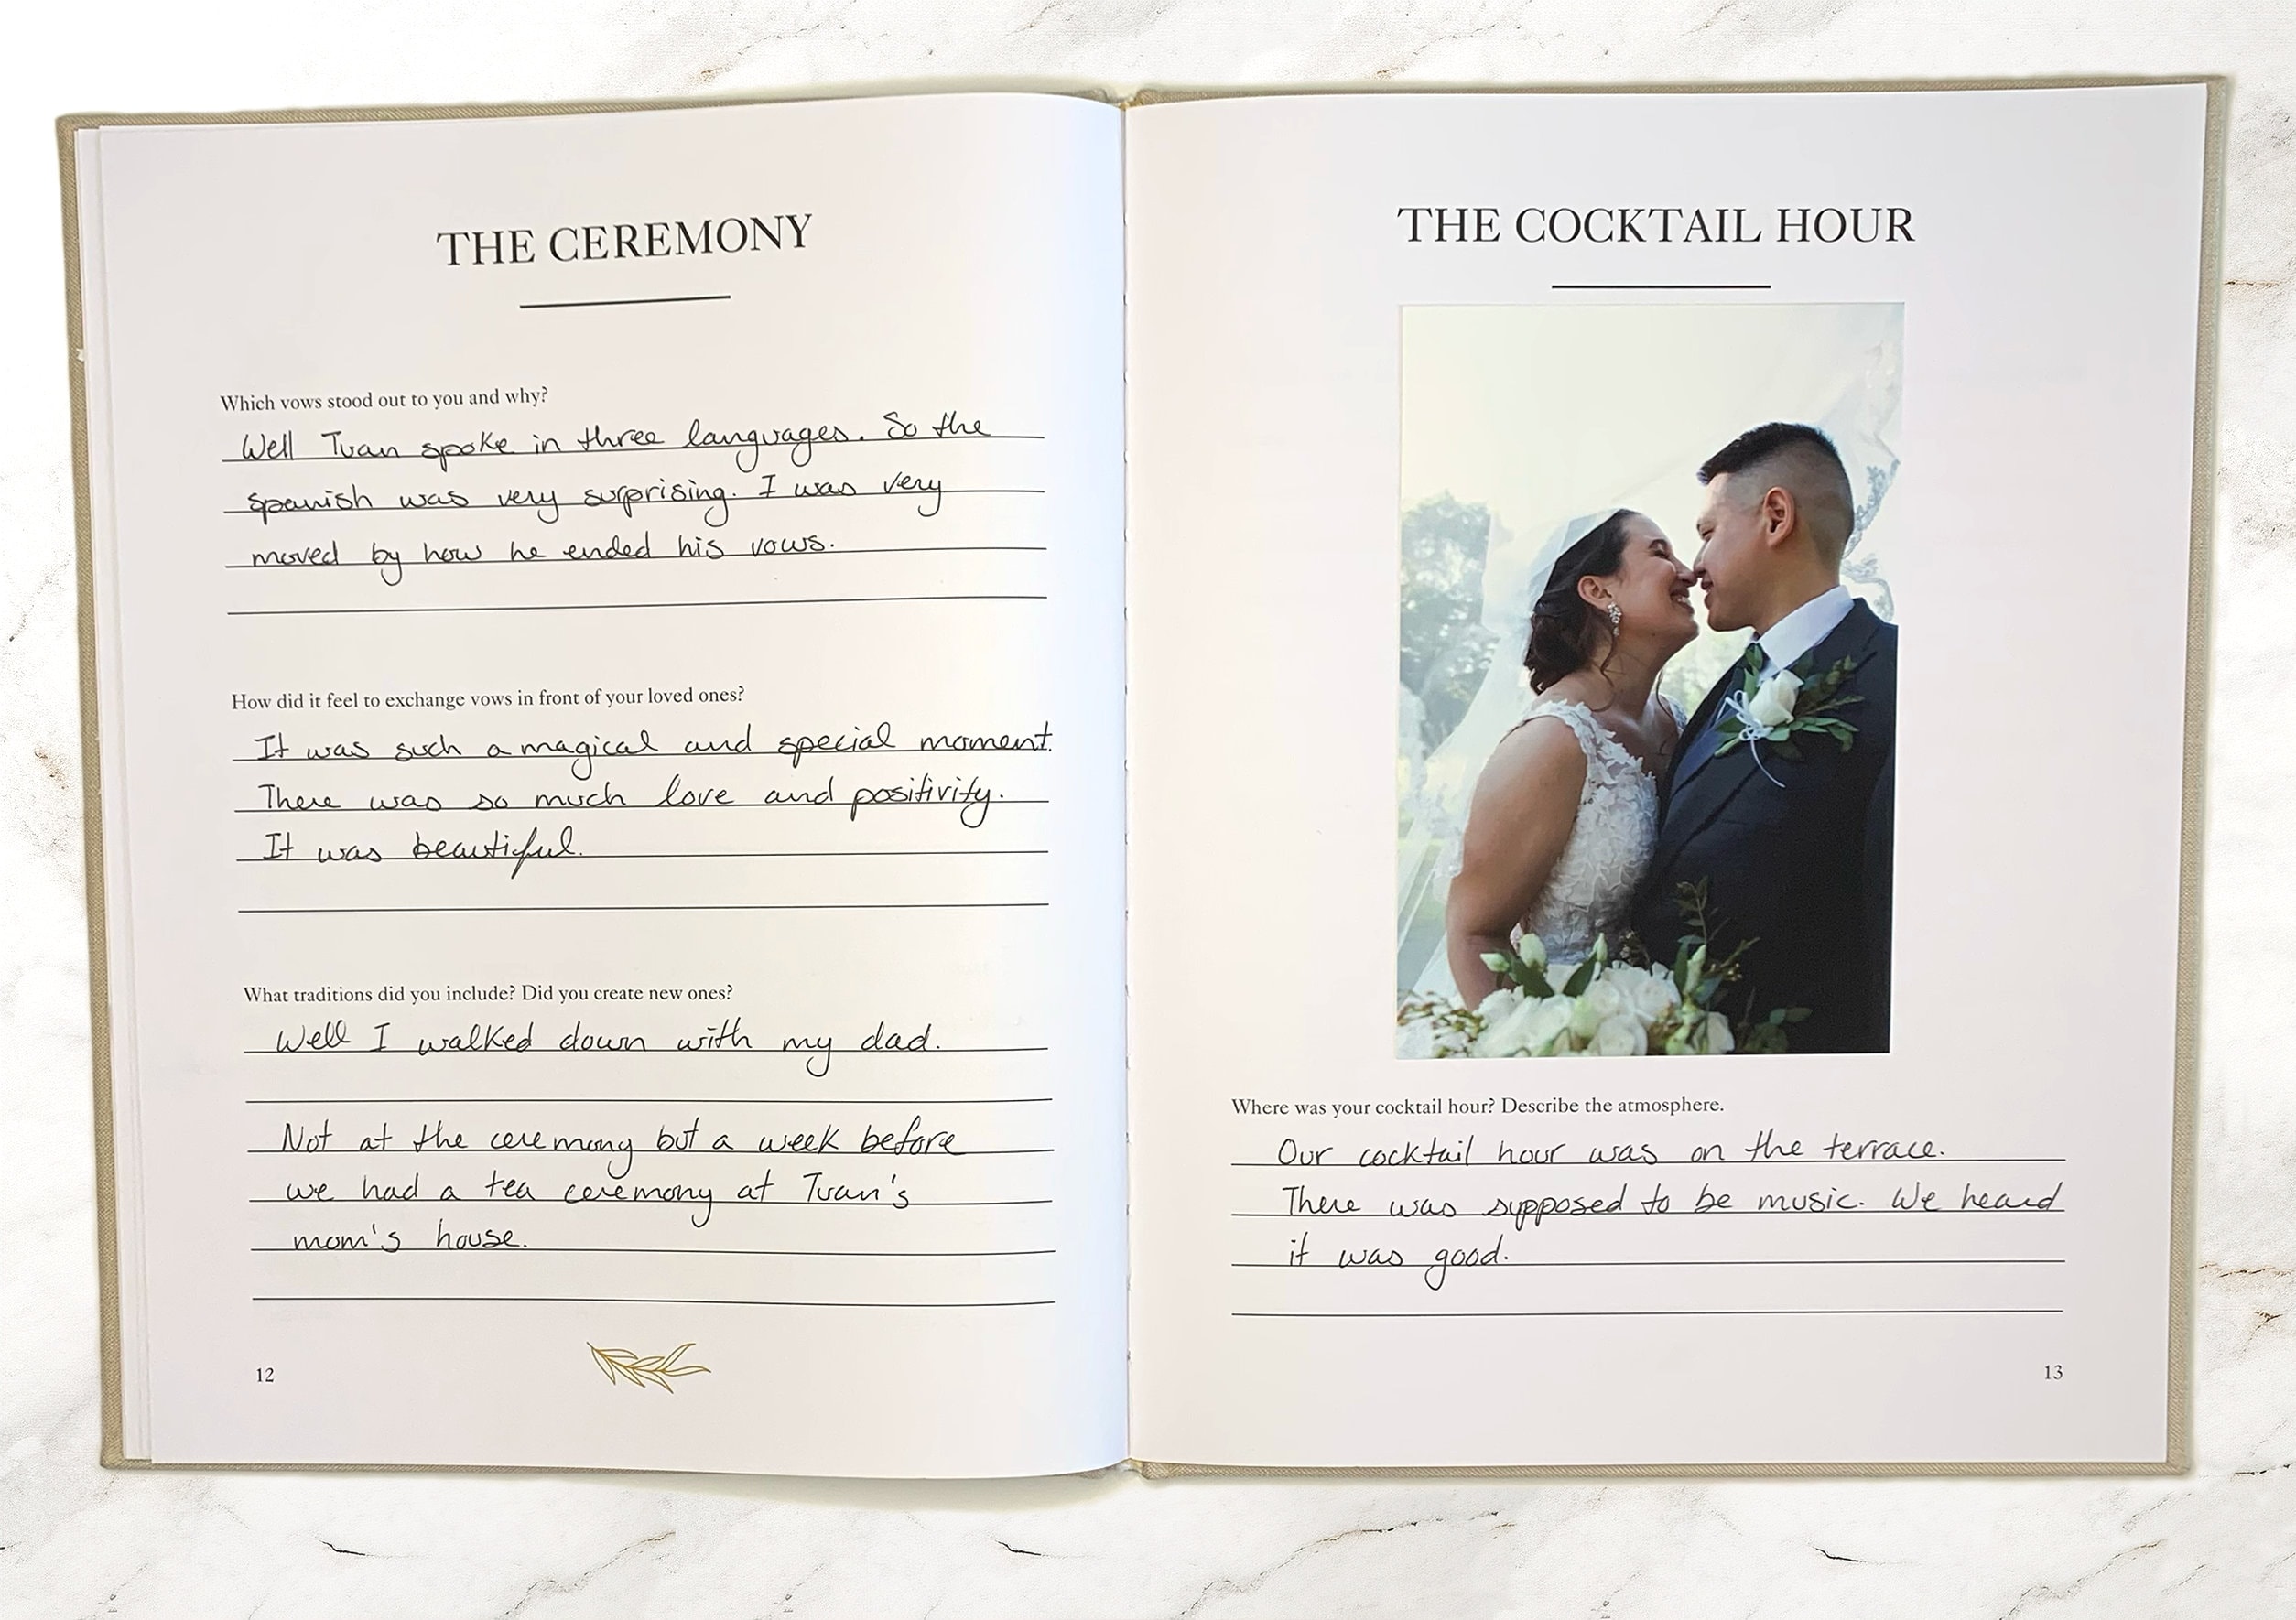 THE CEREMONY
Which vows stood out to you and why?
Well Tuan spoke in three languages. So the
spanish was very surprising. I was very
moved by how he ended his vows.
How did it feel to exchange vows in front of your loved ones?
It was such a magical and special moment.
There was so much love and positivity.
It was beautiful.
What traditions did you include? Did you create new ones?
Well I walked down with my dad.
Not at the ceremony but a week before
we had a tea ceremony at Tuan's
mom's house.
12
THE COCKTAIL HOUR
Where was your cocktail hour? Describe the atmosphere.
Our cocktail hour was on the terrace.
There was supposed to be music. We heard
it was good.
13